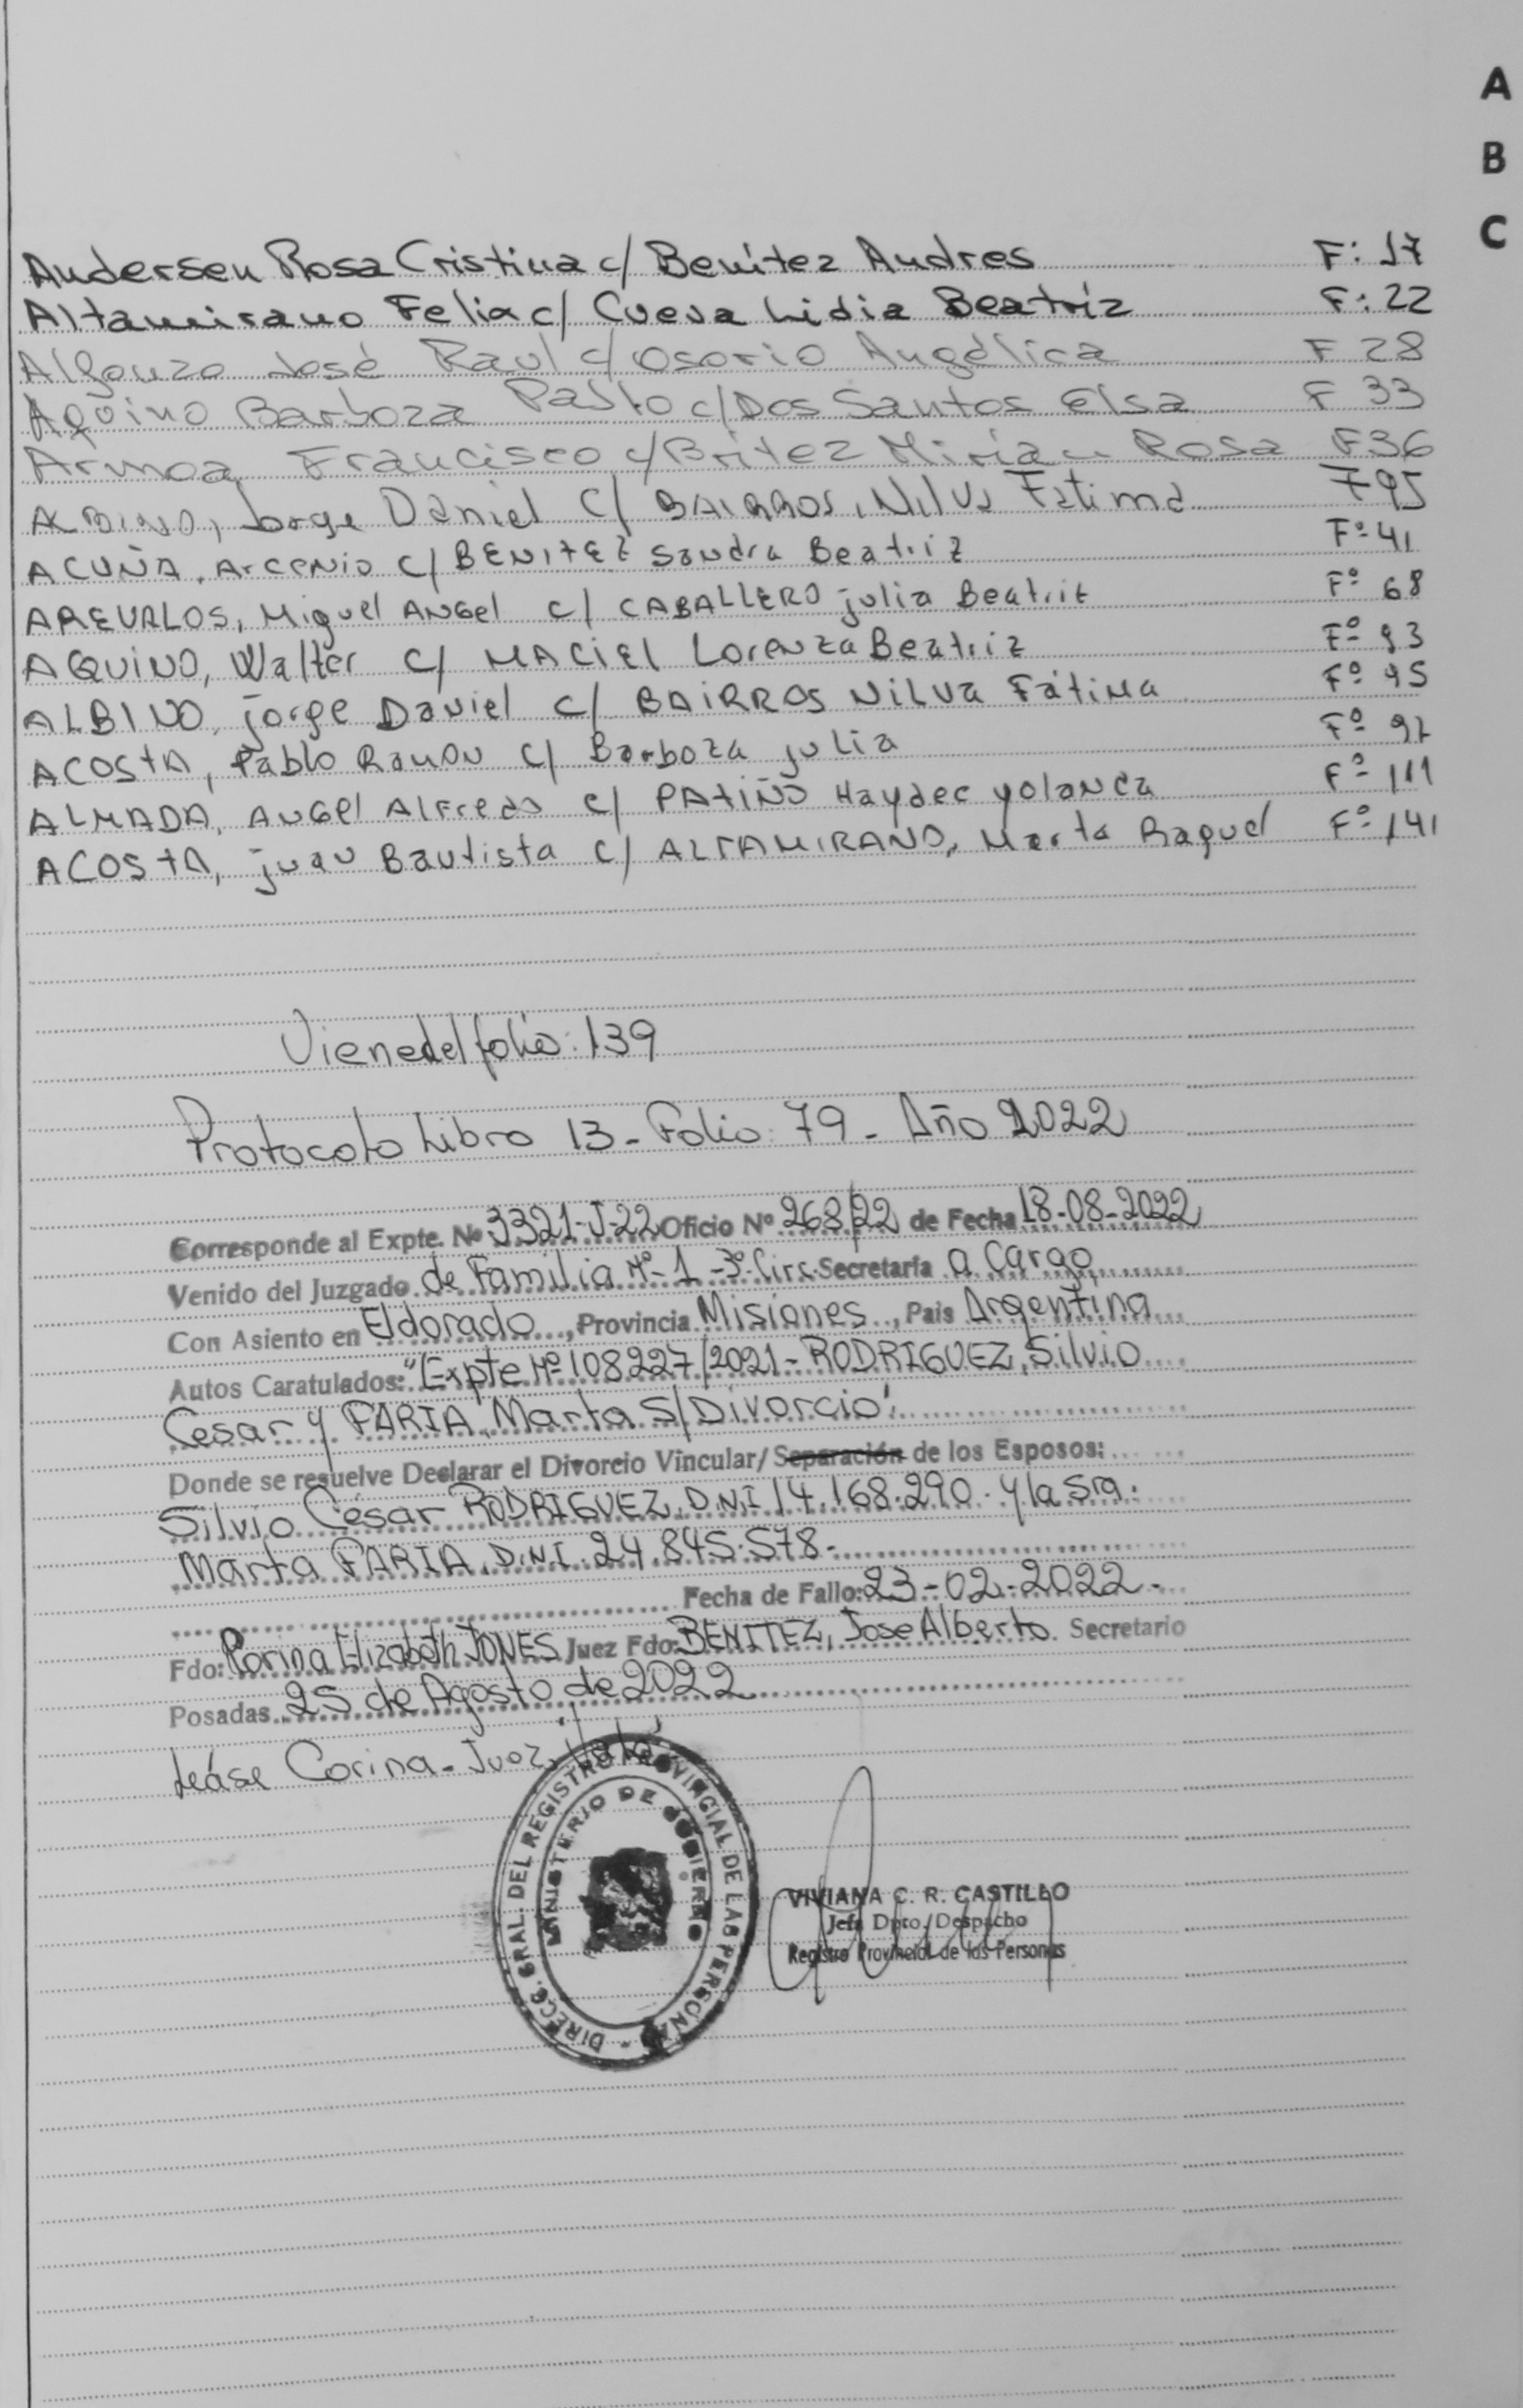 A
B
C
Andersen Rosa Cristina c/ Benítez Andres F: 17
Altamirano Felia c/ Cueva Lidia Beatríz F: 22
Alfonzo José Raul c/ Osorio Angélica F 28
Aquino Barboza Pablo c/ Dos Santos Elsa F 33
Armoa Francisco c/ Britez Mirian Rosa F36
ALBINO, Jorge Daniel c/ BAIRROS, Nilva Fatima F95
ACUÑA, Arcenio c/ BENITEZ Sandra Beatriz Fº 41
AREVALOS, Miguel ANGel c/ CABALLERO julia Beatriz Fº 68
AQUINO, Walter c/ MACIEL Lorenza Beatriz Fº 93
ALBINO, jorge Daniel c/ BAIRROS NILVA Fátima Fº 95
ACOSTA, Pablo Ramon c/ Barboza julia Fº
ALMADA, ANGel Alfredo c/ PATIÑO Haydee yolanda Fº 111
ACOSTA, juan Bautista c/ ALTAMIRANO, Marta Raquel Fº 141
Viene del folio: 139
Protocolo Libro 13 - Folio: 79 - Año 2022
Corresponde al Expte. Nº 3321-J-22 Oficio Nº 268/22 de Fecha 18-08-2022
Venido del Juzgado de Familia Nº-1-3º Circ. Secretaría a Cargo
Con Asiento en Eldorado, Provincia Misiones, Pais Argentina
Autos Caratulados: "Expte Nº 108227/2021 - RODRIGUEZ, Silvio
Cesar y FARIA Marta S/ Divorcio"
Donde se resuelve Declarar el Divorcio Vincular/ Separación de los Esposos:
Silvio César RODRIGUEZ, D.N.I 14.168.290. y la Sra.
Marta FARIA, D.N.I. 24.845.578-
Fecha de Fallo: 23-02-2022-
Fdo: Rorina Elizabeth JONES Juez Fdo: BENITEZ, Jose Alberto Secretario
Posadas 25 de Agosto de 2022
Léase Corina - Juez. Vale
DIRECC. GRAL. DEL REGISTRO PROVINCIAL DE LAS PERSONAS -
MINISTERIO DE GOBIERNO
VIVIANA C. R. CASTILLO
Jefa Dpto. Despacho
Registro Provincial de las Personas